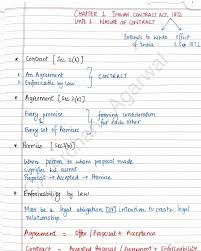 CHAPTER 1 INDIAN CONTRACT ACT, 1872
UNIT 1: NATURE OF CONTRACT
Extends to whole of India
Effect 1 Sep 1872
* Contract [Sec 2(h)]
1) An Agreement
2) Enforceable by Law
CONTRACT
* Agreement [Sec 2(e)]
Every promise
Every set of Promise
forming consideration for each other
* Promise [Sec 2(b)]
When person to whom proposal made
signifies his assent
Proposal → Accepted → Promise
* Enforceability by Law
Must be a legal obligation intention to create legal
relationship
Agreement = Offer / Proposal + Acceptance
Contract = Accepted Proposal / Agreement + Enforceability